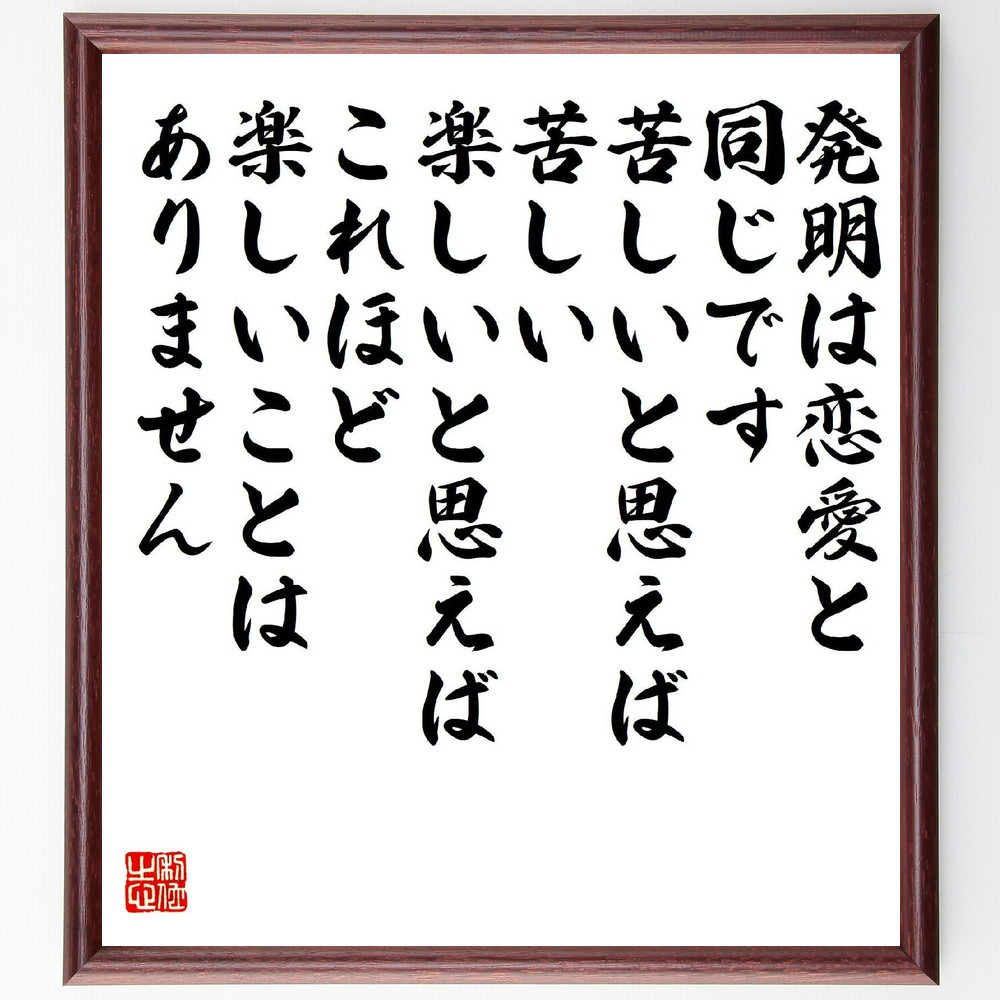 発明は恋愛と
同じです
苦しいと思えば
苦しい
楽しいと思えば
これほど
楽しいことは
ありません